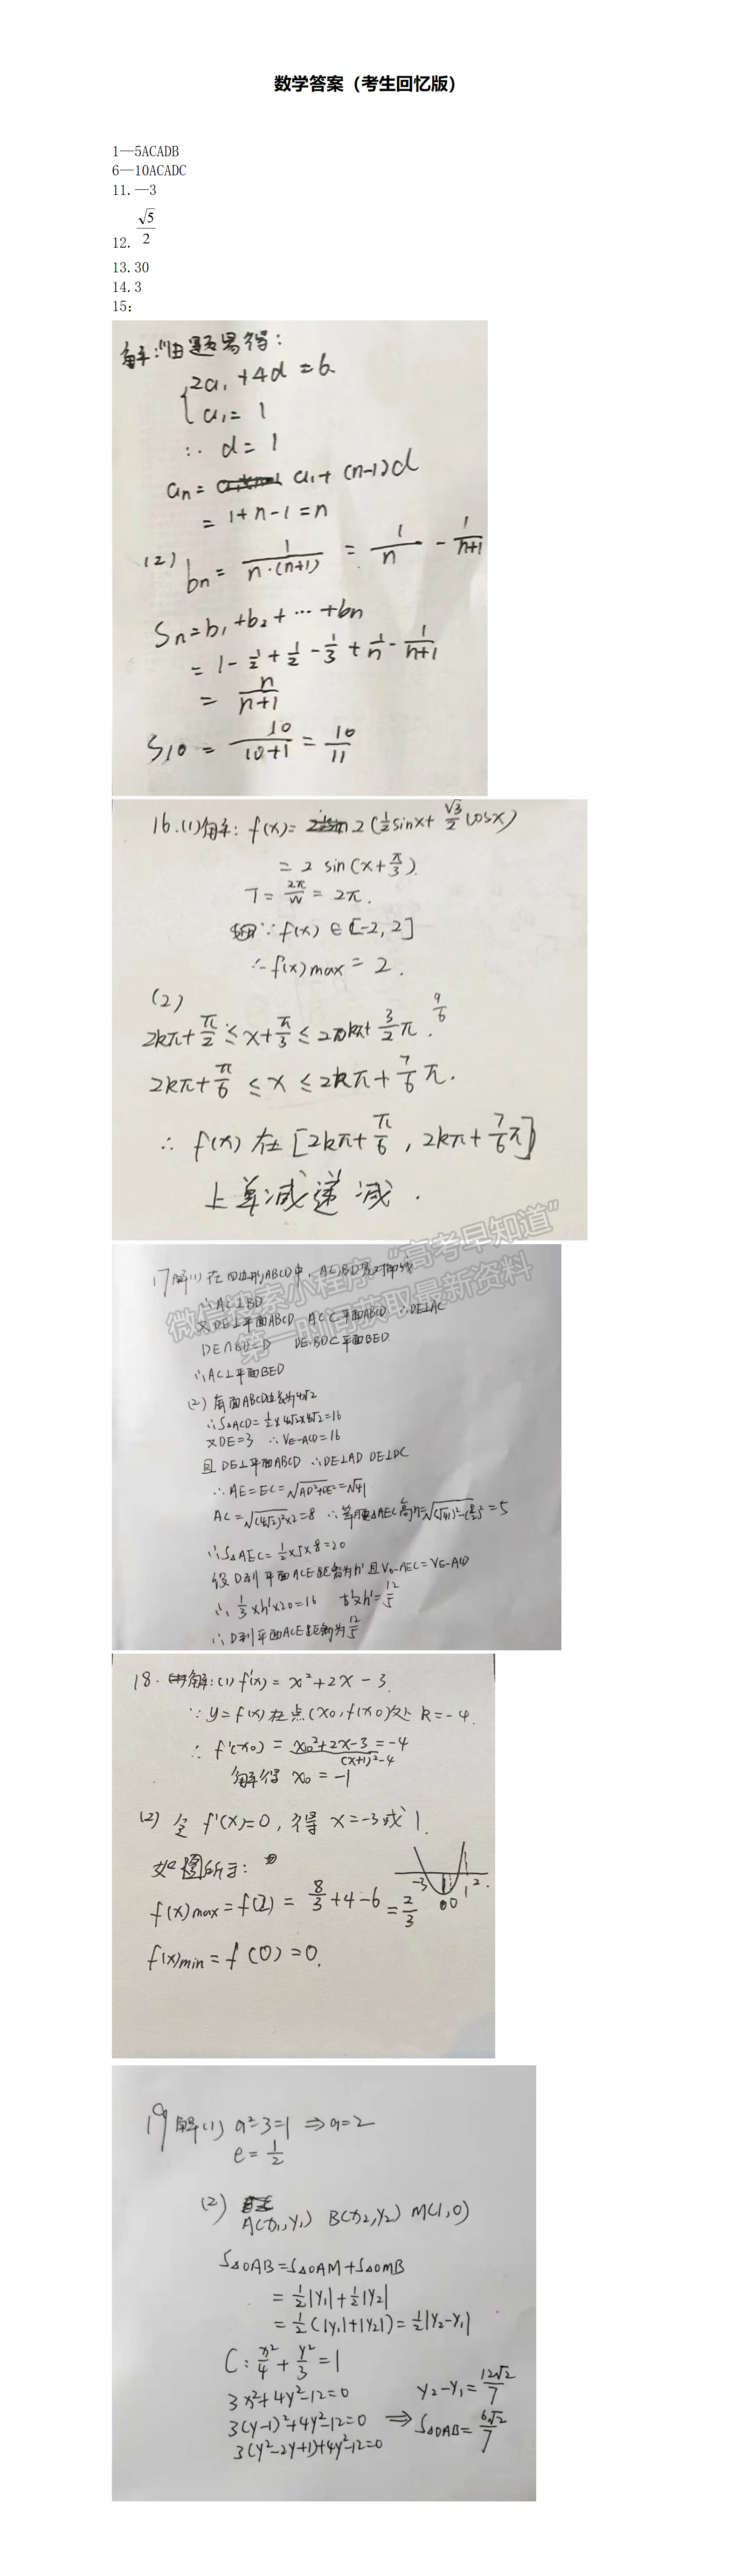 数学答案（考生回忆版）
1—5ACADB
6—10ACADC
11.—3
12. √5/2
13.30
14.3
15:
解:(1)由题易得:
{2a₁+4d=6
a₁=1
∴ d=1
aₙ= a₁+(n-1)d
=1+n-1=n
(2) bₙ= 1/(n·(n+1)) = 1/n - 1/(n+1)
Sₙ=b₁+b₂+…+bn
=1-1/2+1/2-1/3+1/n-1/(n+1)
= n/(n+1)
S10 = 10/(10+1) = 10/11
16.(1)解: f(x)= 2(1/2 sinx+ √3/2 cosx)
= 2 sin(x+π/3).
T= 2π/W = 2π.
∵f(x)∈[-2,2]
∴f(x)max=2.
(2)
2kπ+π/2≤x+π/3≤2kπ+3/2π. 9/6
2kπ+π/6≤x≤2kπ+7/6π.
∴ f(x)在[2kπ+π/6, 2kπ+7/6π]
上单减递减.
微信搜索小程序“高考早知道”
第一时间获取最新资料
17解(1)在四边形ABCD中, AC,BD是对角线
∴AC⊥BD
又DE⊥平面ABCD AC⊂平面ABCD ∴DE⊥AC
DE∩BD=D DE,BD⊂平面BED
∴AC⊥平面BED
(2) 面ABCD边长为4√2
∴S△ACD=1/2×4√2×4√2=16
又DE=3 ∴VE-ACD=16
且DE⊥平面ABCD ∴DE⊥AD DE⊥DC
∴AE=EC=√(AD²+DE²)=√41
AC=√((4√2)²×2)=8 ∴等腰△AEC高h=√((√41)²-(8/2)²)=5
∴S△AEC=1/2×5×8=20
设D到平面ACE距离为h'且VD-AEC=VE-ACD
∴1/3×h'×20=16 故h'=12/5
∴D到平面ACE距离为12/5
18. 解:(1) f'(x)=x²+2x-3.
∵y=f(x)在点(x₀,f(x₀))处 k=-4.
∴ f'(x₀)=x₀²+2x-3=-4
(x+1)²-4
解得 x₀=-1
(2) 令f'(x)=0, 得x=-3或1.
如图所示:
-3 0 1 2
f(x)max=f(2)= 8/3+4-6=2/3
f(x)min=f(0)=0.
19解(1) a²-3=1 ⇒a=2
e=1/2
(2)
A(x₁,y₁) B(x₂,y₂) M(1,0)
S△OAB=S△OAM+S△OMB
=1/2|y₁|+1/2|y₂|
=1/2(|y₁|+|y₂|)=1/2|y₂-y₁|
C: x²/4+y²/3=1
3x²+4y²-12=0
3(y-1)²+4y²-12=0
3(y²-2y+1)+4y²-12=0
⇒ y₂-y₁=12√2/7
S△OAB=6√2/7